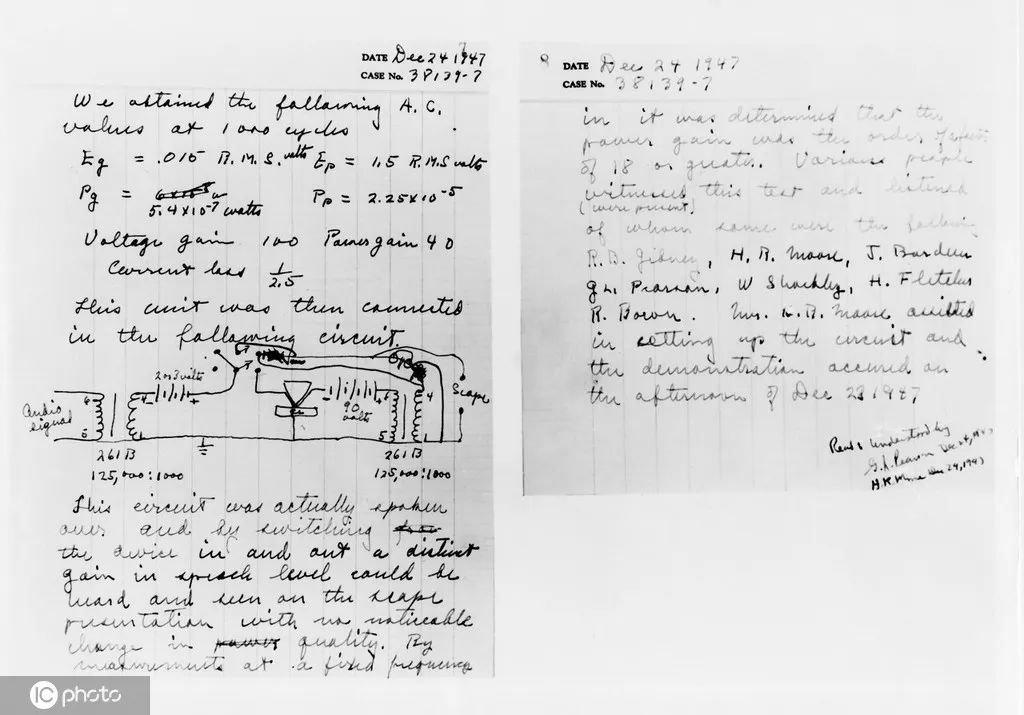 7
DATE Dec 24 1947
CASE No. 38139-7
We obtained the following A.C.
values at 1000 cycles
Eg = .015 R.M.S. volts Ep = 1.5 R.M.S volts
Pg = 5.4 x 10-7 watts Pp = 2.25 x 10-5
Voltage gain 100 Power gain 40
Current loss 1/2.5
This unit was then connected
in the following circuit.
2 or 3 volts
90 volts
Scope
Audio signal
6 4 - + - + 6 4
5 1 5 1
261 B 261 B
125,000:1000 125,000:1000
This circuit was actually spoken
over and by switching
the device in and out a distinct
gain in speech level could be
heard and seen on the scope
presentation with no noticeable
change in power quality. By
measurements at a fixed frequency
8
DATE Dec 24 1947
CASE No. 38139-7
in it was determined that the
power gain was the order of a factor
of 18 or greater. Various people
witnessed this test and listened
(were present)
of whom some were the following
R.B. Gibney, H.R. Moore, J. Bardeen
G.L. Pearson, W Shockley, H. Fletcher
R. Bown. Mr. H.R. Moore assisted
in setting up the circuit and
the demonstration occured on
the afternoon of Dec 23 1947
Read & Understood by
G.L. Pearson Dec 24, 1947
H.R. Moore Dec 24, 1947
IC photo